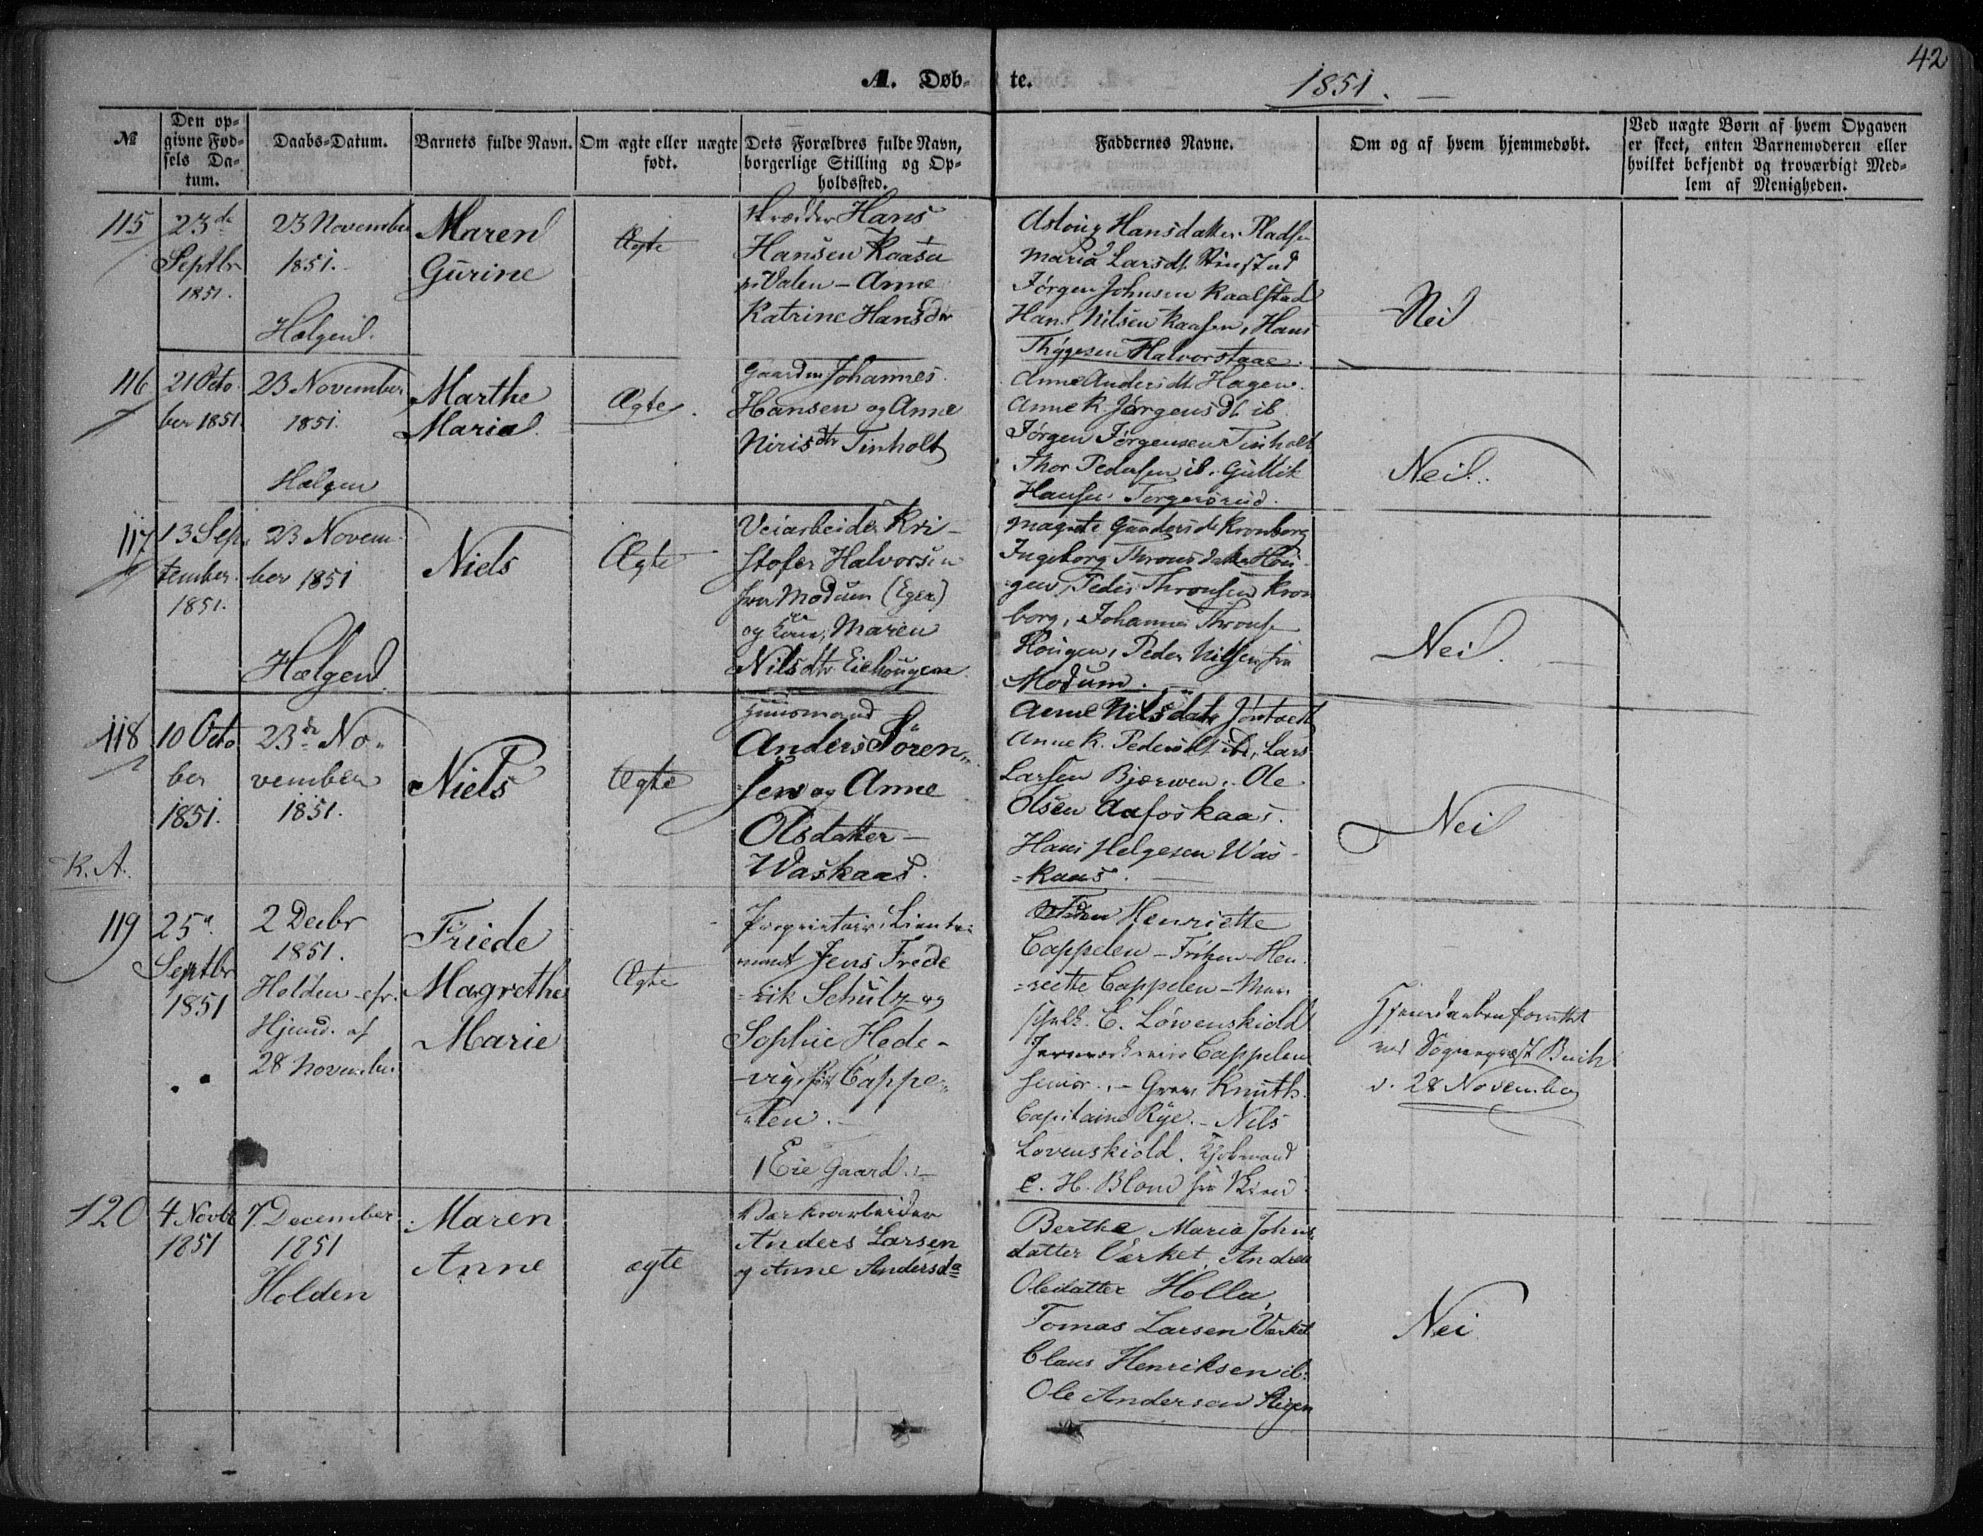 42
A. Døb- te. 1851.
№
Den op-
givne Fød-
sels Da-
tum.
Daabs-Datum.
Barnets fulde Navn.
Om ægte eller uægte
født.
Dets Forældres fulde Navn,
borgerlige Stilling og Op-
holdssted.
Faddernes Navne.
Om og af hvem hjemmedøbt.
Ved uægte Børn af hvem Opgaven
er skeet, enten Barnemoderen eller
hvilket bekjendt og troværdigt Med-
lem af Menigheden.
115
23de
Septbr
1851.
23 November
1851.
Helgen
Maren
Gurine
Ægte
Skrædder Hans
Hansen Kaasa
Valen - Anne
Katrine Hansdtr
Asloug Hansdatter Pladsen
Maria Larsdt.
Jørgen Johnsen Kaalstad
Hans Nilsen Kaasen, Hans
Thygesen Halvorstaae.
Nei
116
21 Octo
ber 1851.
23 November
1851.
Helgen
Marthe
Maria
Ægte.
Gaardm Johannes
Hansen og Anne
Nirisdtr Tinholt
Anne Andersdt. Hagen.
Anne K. Jørgensdt ib.
Jørgen Jørgensen Tinholt
Thor Pedersen ib. Gullik
Hansen Torgersrud.
Nei
117
13 Sep
tember
1851.
23 Novem
ber 1851
Helgen
Niels
Ægte
Veiarbeider Kri-
stofer Halvorsen
fra Modum (Eger)
og Kone, Maren
Nilsdtr Eiehougene
Ingeborg Thronsdatter Hou-
gen, Peder Thronsen Kron
borg, Johannes Throns
Hougen, Peder Nilsen fra
Modum.
Nei.
118
10 Octo
ber
1851.
23de No-
vember
1851.
Niels
Ægte
Huusmand
Anders Sören-
sen og Anne
Olsdatter -
Waskaas.
Anne Nilsdatr
Anne K. Pedersdt ib, Lars
Larsen Bjerwen, Ole
Olsen Aafoskaas.
Hans Helgesen Was-
=kaas.
Nei
K. A.
119
25de
Septbr
1851
2 Decbr
1851.
Holden efr.
Hjemd. af
28 November
Friede
Magrethe
Marie
Ægte
Proprietair, Lieute-
nant Jens Frede
=rik Schulz og
Sophie Hede-
-vig født Cappe-
-len.
Eie Gaard.
Henriette
Cappelen - Frøken Hen-
=riette Cappelen -
E. Løwenskiold
Cappelen
senior. - Grev Knuth.
Capitaine Rye. - Nils
Lovenskiold. Kjøbmand
C. H. Blom fra Skien
Hjemdaaben forrettet
ved Sognepræst Buch
d. 28 November
120
4 Novbr
1851
7. December
1851
Holden
Maren
Anne
ægte
Værksarbeider
Anders Larsen
og Anne Andersda
Berthe Maria Johns
datter Værket, Andrea
Olesdatter Holla,
Tomas Larsen Værket
Claus Henriksen ib:
Ole Anderson
Nei